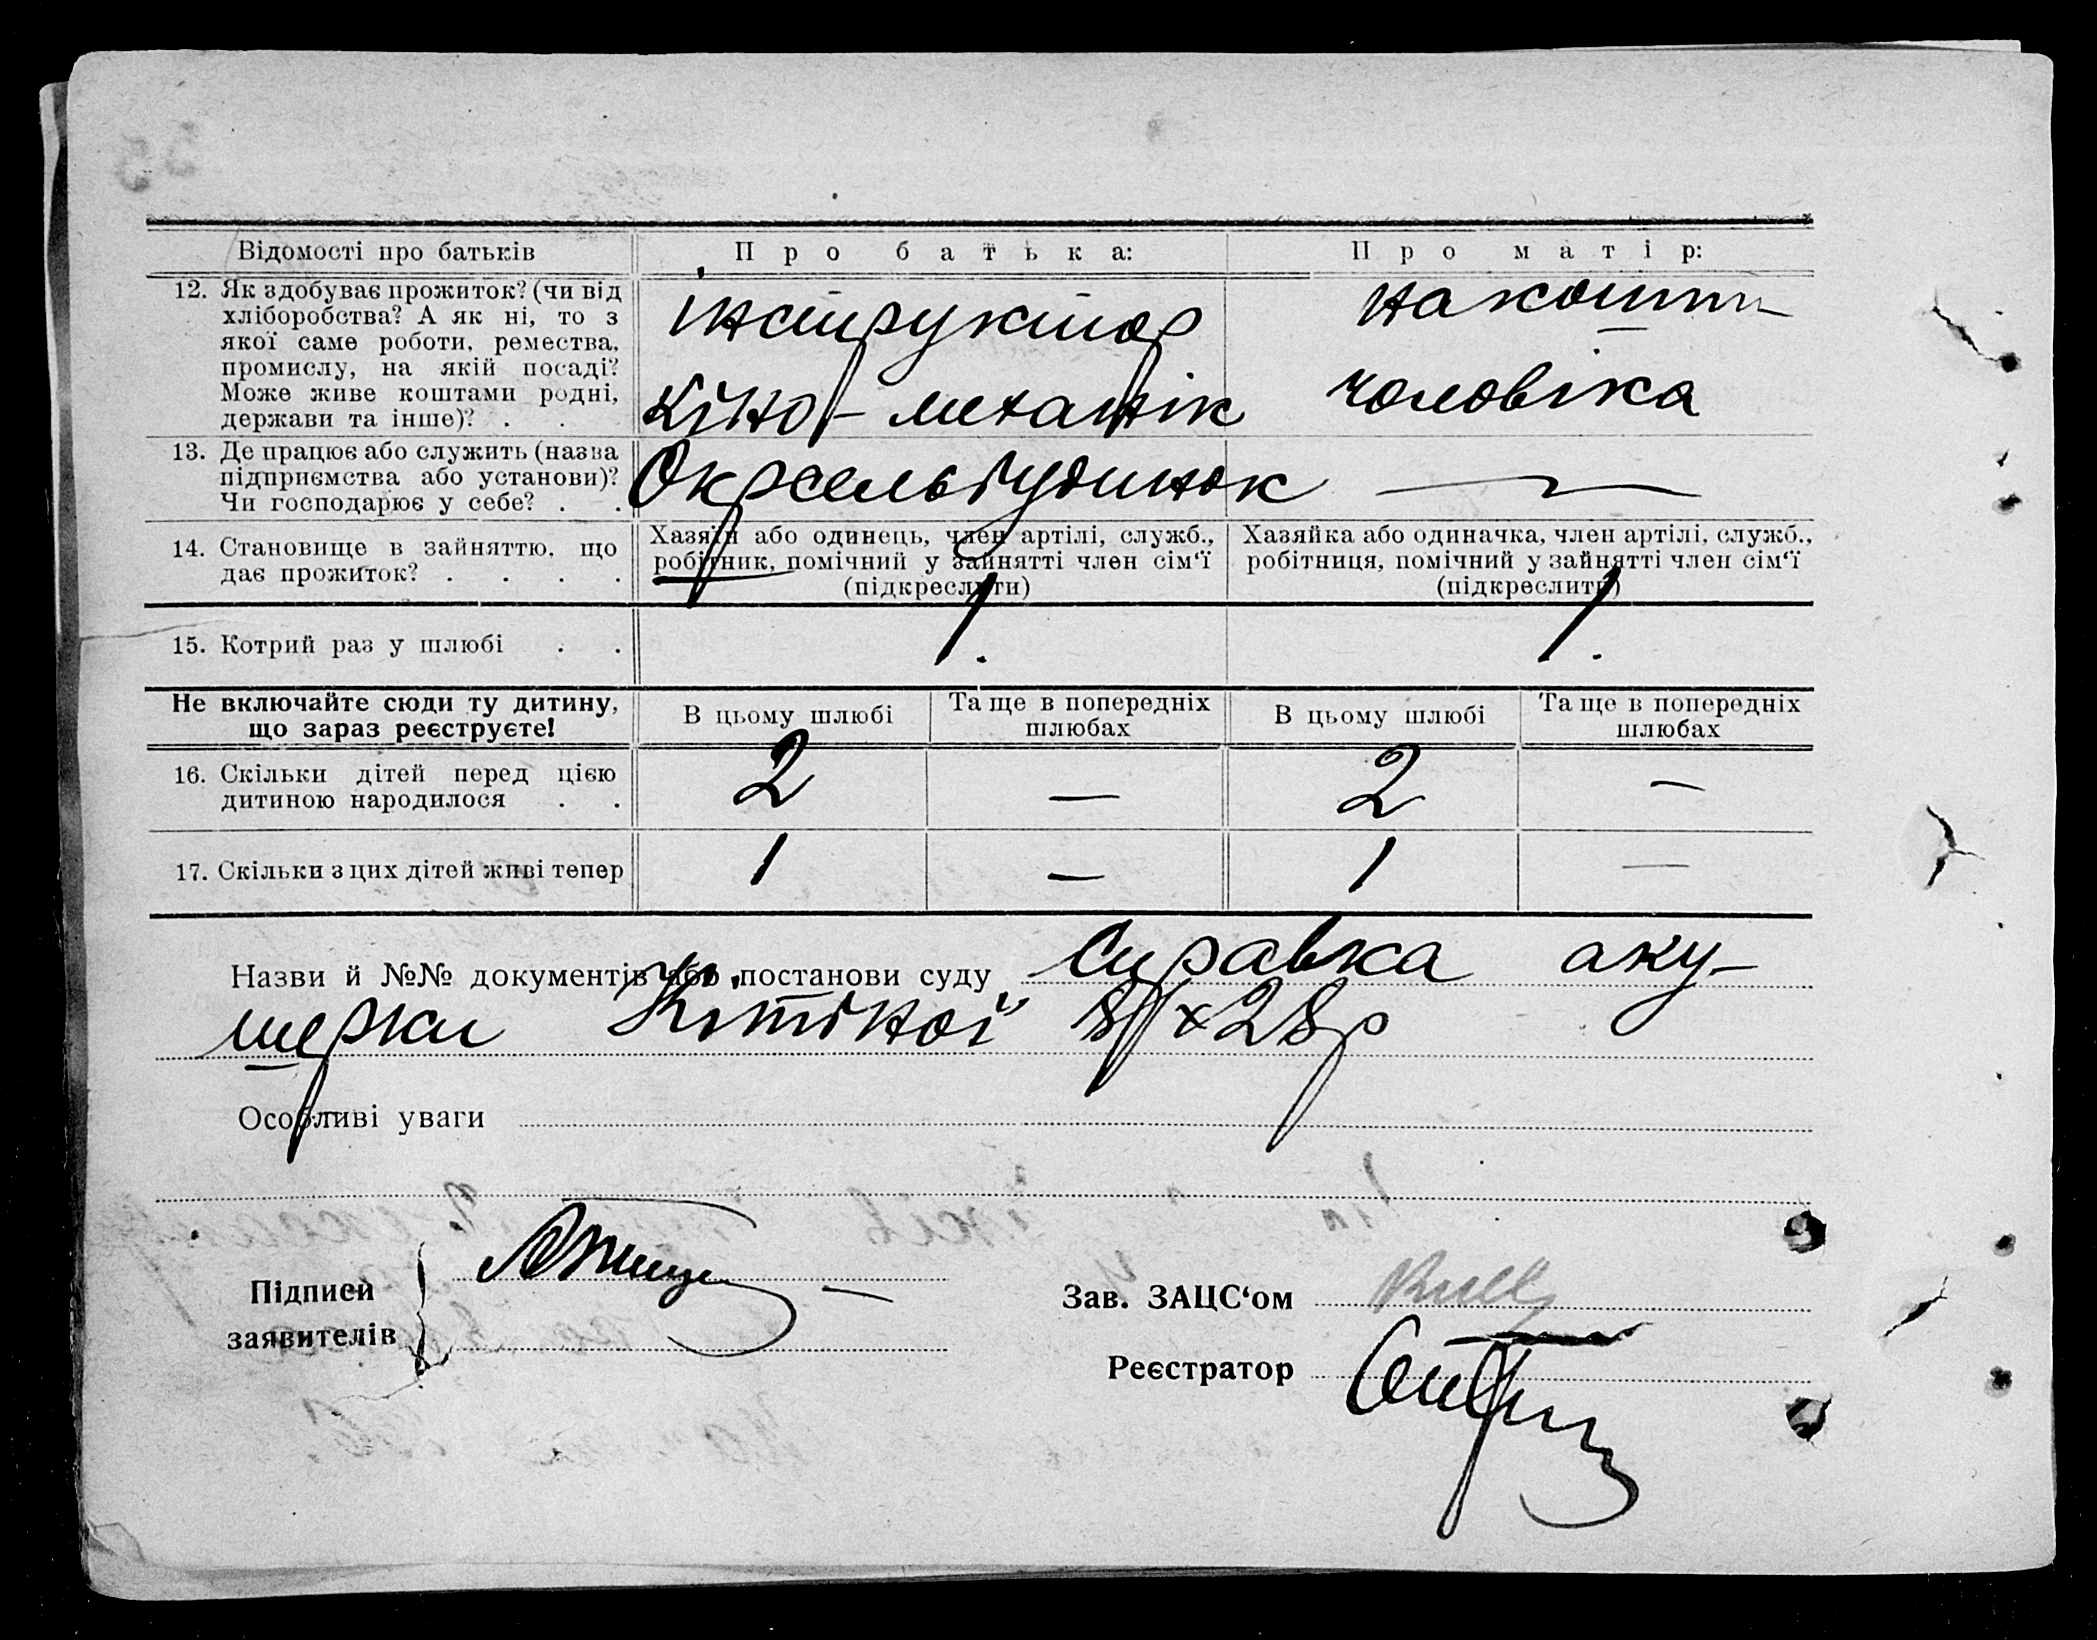 Відомості про батьків
Про батька:
Про матір:
12. Як здобуває прожиток? (чи від
хліборобства? А як ні, то з
якої саме роботи, ремества,
промислу, на якій посаді?
Може живе коштами родні,
держави та інше)? . .
інструктор
кіно-механік
на кошти
чоловіка
13. Де працює або служить (назва
підприємства або установи)?
Чи господарює у себе? . .
Окрсельбудинок —
14. Становище в зайняттю, що
дає прожиток? . . . .
Хазяїн або одинець, член артілі, служб.,
робітник, помічний у зайнятті член сім‘ї
(підкреслити)
Хазяйка або одиначка, член артілі, служб.,
робітниця, помічний у зайнятті член сім‘ї
(підкреслити)
15. Котрий раз у шлюбі . .
1.
1.
Не включайте сюди ту дитину,
що зараз реєструєте!
В цьому шлюбі
Та ще в попередніх
шлюбах
В цьому шлюбі
Та ще в попередніх
шлюбах
16. Скільки дітей перед цією
дитиною народилося . .
2 — 2 —
17. Скільки з цих дітей живі тепер
1 — 1 —
Назви й №№ документів або постанови суду Справка аку-
шерки
Особливі уваги
Підписи
заявителів
Зав. ЗАЦС‘ом
Реєстратор